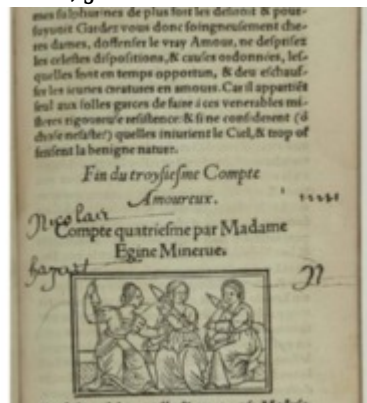 mes sulphurines de plus fort les destruit & pour-
suyuit Gardez vous donc soingneusement che-
res dames, d'offenser le vray Amour, ne desprisez
les celestes dispositions, & causes ordonnées, les-
quelles sont en temps opportun, & deu eschauf-
fer les ieunes creatures en amours. Car il appartiēt
seul aux folles garces de faire à ces venerables mi-
steres rigoureuse resistence: & si ne considerent (ô
chose nefaste!) quelles iniurient le Ciel, & trop of
fensent la benigne nature.
Fin du troysiesme Compte
Amoureux.
Nicolais
Compte quatriesme par Madame
Egine Minerue.